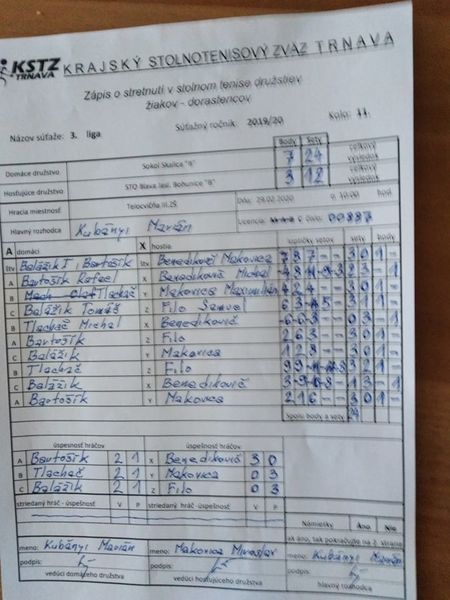 KSTZ TRNAVA KRAJSKÝ STOLNOTENISOVÝ ZVÄZ TRNAVA
Zápis o stretnutí v stolnom tenise družstiev
žiakov - dorastencov
Názov súťaže: 3. liga Súťažný ročník: 2019/20 Kolo: 11.
Body Sety
Domáce družstvo Sokol Skalica "B" 7 24 celkový výsledok
Hosťujúce družstvo STO Blava Jasl. Bohunice "B" 3 12 celkový výsledok
Hracia miestnosť Telocvičňa III.ZŠ Dňa: 29.02.2020 o 10.00 hod
Hlavný rozhodca Kubányi Marián Licencia č číslo: 00887
A domáci X hostia lopticky setov sety body
štv Balážik T, Bartošík štv Benedikovič Makovica 7 8 7 - - 3 0 1 -
A Bartošík Rafael X Benedikovič Michal 2 3 - 1
B Tlachač Y Makovica Maxmilián 4 2 4 - - 3 0 1 -
C Balážik Tomáš Z Filo Samuel 3 1 1 -
B Tlachač Michal X Benedikovič 0 3 - 1
A Bartošík Z Filo 2 6 3 - - 3 0 1 -
C Balážik Y Makovica 1 2 8 - - 3 0 1 -
B Tlachač Z Filo 3 2 1 -
C Balážik X Benedikovič 1 3 - 1
A Bartošík Y Makovica 2 1 6 - - 3 0 1 -
Spolu body a sety 24
úspesnosť hráčov úspešnosť hráčov
A Bartošík 2 1 X Benedikovič 3 0
B Tlachač 2 1 Y Makovica 0 3
C Balážik 2 1 Z Filo 0 3
striedaný hráč - úspešnosť V P striedaný hráč - úspešnosť V P
Námietky Áno Nie
ak áno, tak pokračujte na 2. strane
meno: Kubányi Marián meno: Makovica Miroslav meno: Kubányi Marián
podpis: podpis: podpis:
vedúci domáceho družstva vedúci hosťujúceho družstva hlavný rozhodca